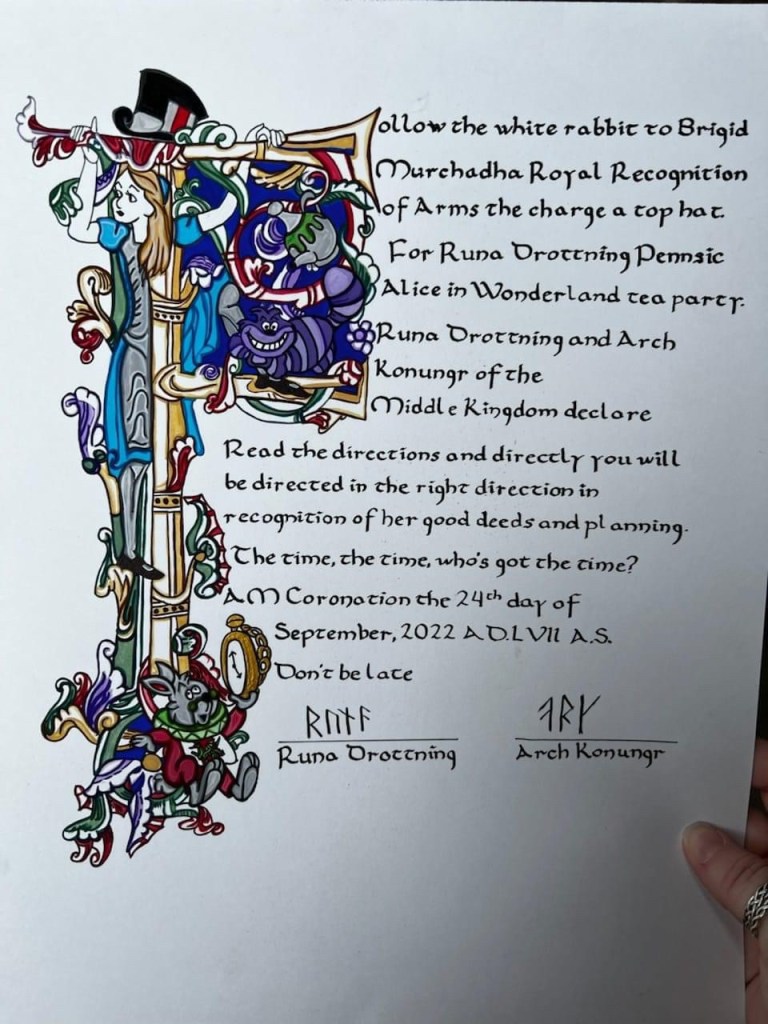 Follow the white rabbit to Brigid
Murchadha Royal Recognition
of Arms the charge a top hat.
For Runa Drottning Pennsic
Alice in Wonderland tea party.
Runa Drottning and Arch
Konungr of the
Middle Kingdom declare
Read the directions and directly you will
be directed in the right direction in
recognition of her good deeds and planning.
The time, the time, who's got the time?
AM Coronation the 24th day of
September, 2022 A.D. LVII A.S.
Don't be late
ᚱᚢᚾᚨ ᛅᚱᚴ
Runa Drottning Arch Konungr